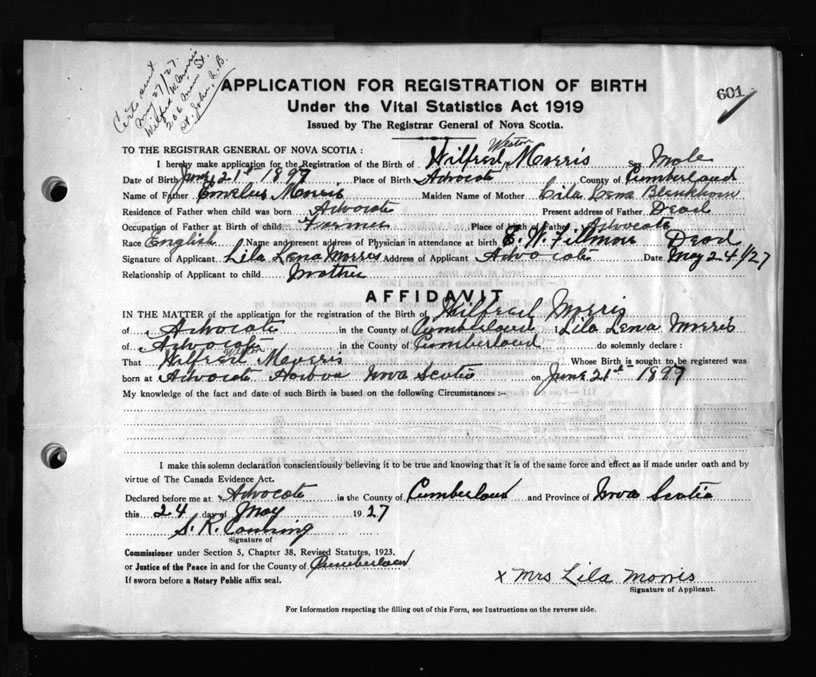 Cert. sent
May 27/27.
Wilfred W. Morris
206 Main St.
St. John, N.B.
601
APPLICATION FOR REGISTRATION OF BIRTH
Under the Vital Statistics Act 1919
Issued by The Registrar General of Nova Scotia.
TO THE REGISTRAR GENERAL OF NOVA SCOTIA :
I hereby make application for the Registration of the Birth of Wilfred Weston Morris Sex Male
Date of Birth June 21st 1899 Place of Birth Advocate County of Cumberland
Name of Father Morris Maiden Name of Mother Lila Lena Blenkhorn
Residence of Father when child was born Advocate Present address of Father Dead
Occupation of Father at Birth of child Farmer Place of birth of Father Advocate
Race English Name and present address of Physician in attendance at birth E. W. Fillmore Dead
Signature of Applicant Lila Lena Morris Address of Applicant Advocate Date May 24/27
Relationship of Applicant to child Mother
AFFIDAVIT
IN THE MATTER of the application for the registration of the Birth of Wilfred Morris
of Advocate in the County of Cumberland I Lila Lena Morris
of Advocate in the County of Cumberland do solemnly declare :
That Wilfred Weston Morris Whose Birth is sought to be registered was
born at Advocate Harbor Nova Scotia on June 21st 1899
My knowledge of the fact and date of such Birth is based on the following Circumstances :-
I make this solemn declaration conscientiously believing it to be true and knowing that it is of the same force and effect as if made under oath and by
virtue of The Canada Evidence Act.
Declared before me at Advocate in the County of Cumberland and Province of Nova Scotia
this 24 day of May 1927
S. R.
Signature of
Commissioner under Section 5, Chapter 38, Revised Statutes, 1923,
or Justice of the Peace in and for the County of Cumberland
If sworn before a Notary Public affix seal.
x Mrs Lila Morris
Signature of Applicant.
For Information respecting the filling out of this Form, see Instructions on the reverse side.